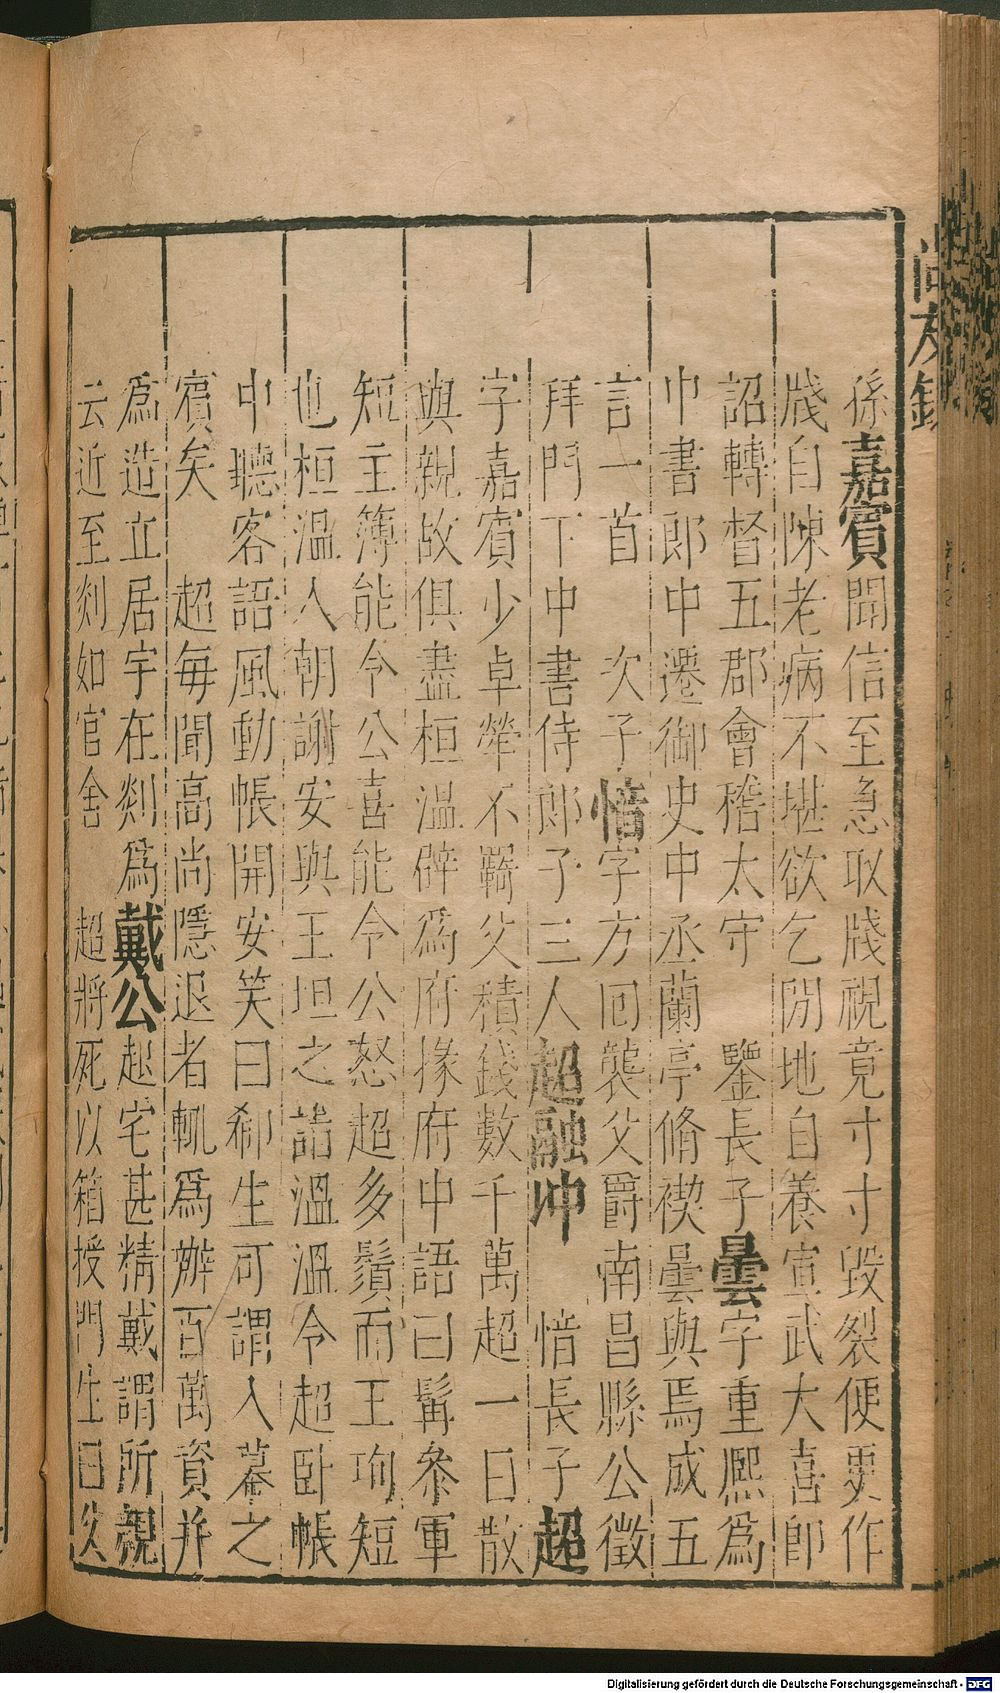 尚友錄
孫嘉賓聞信至急取牋視竟寸寸毀裂便更作
牋自陳老病不堪欲乞閒地自養宣武大喜卽
詔轉督五郡會稽太守　鑒長子曇字重熈爲
中書郎中遷御史中丞蘭亭脩禊曇與焉成五
言一首　次子愔字方回襲父爵南昌縣公徵
拜門下中書侍郎子三人超融冲　愔長子超
字嘉賓少卓犖不羈父積錢數千萬超一日散
與親故俱盡桓溫辟爲府掾府中語曰髯叅軍
短主簿能令公喜能令公怒超多鬚而王珣短
也桓溫入朝謝安與王坦之詣溫溫令超卧帳
中聽客語風動帳開安笑曰郗生可謂入幕之
賓矣　超每聞高尚隱退者輒爲辦百萬資并
爲造立居宇在剡爲戴公起宅甚精戴謂所親
云近至剡如官舍　超將死以箱授門生曰父
Digitalisierung gefördert durch die Deutsche Forschungsgemeinschaft - DFG